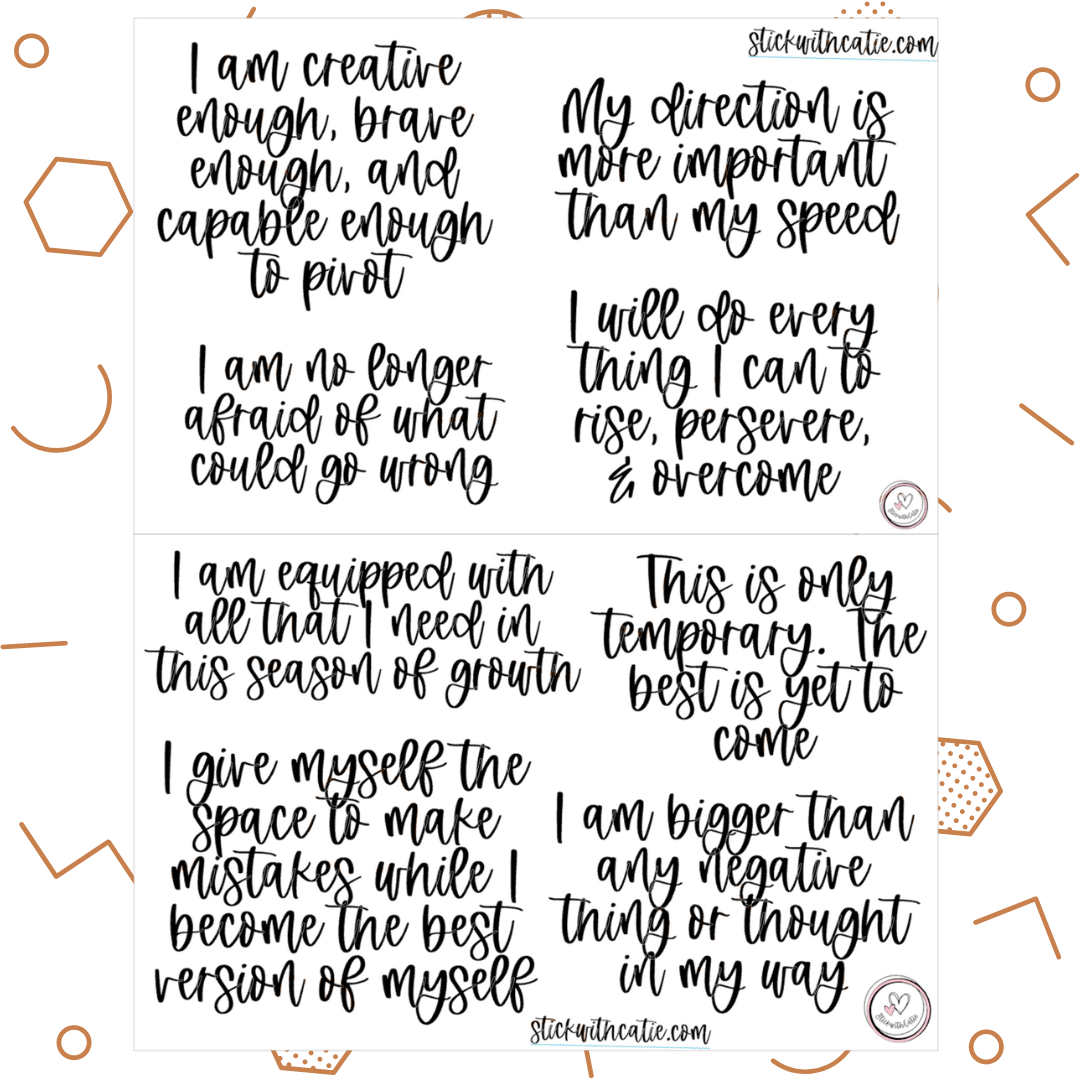 stickwithcatie.com
I am creative
enough, brave
enough, and
capable enough
to pivot
My direction is
more important
than my speed
I am no longer
afraid of what
could go wrong
I will do every
thing I can to
rise, persevere,
& overcome
StickwithCatie
I am equipped with
all that I need in
this season of growth
This is only
temporary. The
best is yet to
come
I give myself the
space to make
mistakes while I
become the best
version of myself
I am bigger than
any negative
thing or thought
in my way
StickwithCatie
stickwithcatie.com